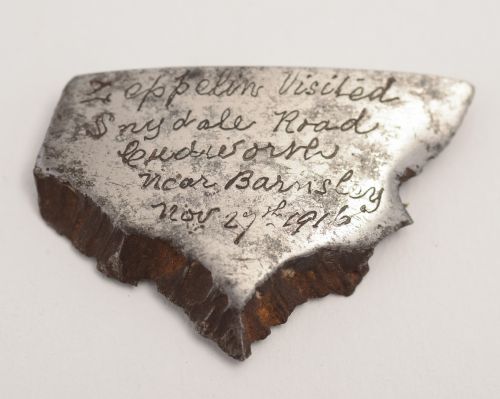 Zeppelin Visited
Snydale Road
Cudworth
Near Barnsley
Nov 27th 1916